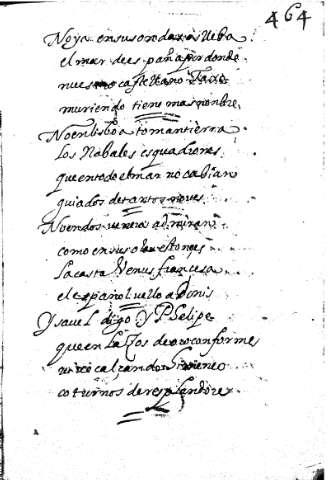 464
No ya en sus ondas lleba
el mar de españa por donde
nuestro castellano Taxo
muriendo tiene mas nombre
No en lisboa toman tierra
Los Nabales esquadrones
que en todo el mar no cabian
guiados de tantos
No en dos admiran
como en su
La casta Venus francesa
el español vello adonis
Ysavel digo y Phelipe
que en laZos de oro conforme
calzando himeneo
coturnos de resplandores